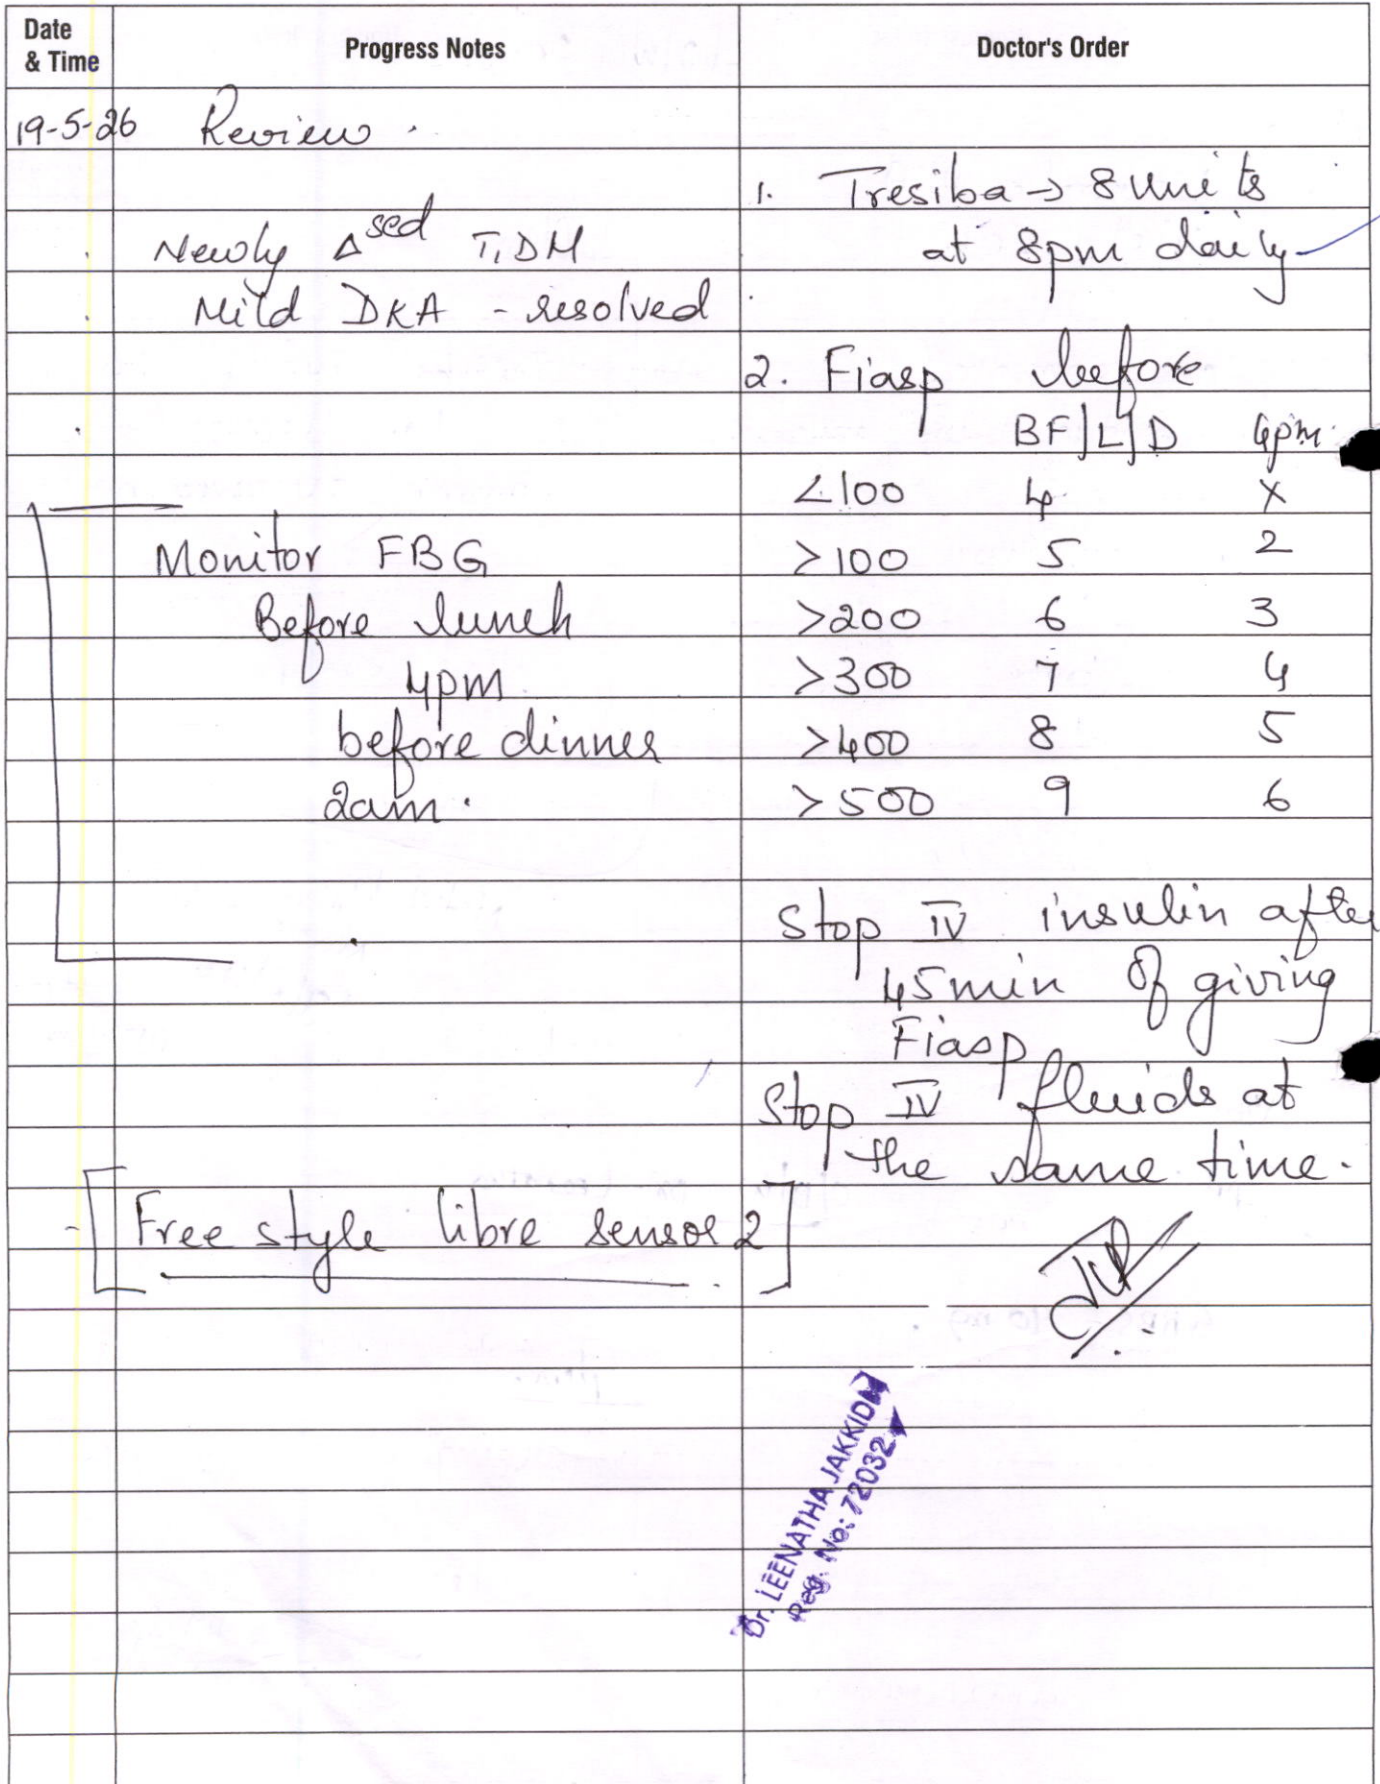 Date
& Time
Progress Notes
Doctor's Order
19-5-26 Review.
Newly Δsed T1DM
Mild DKA - resolved
Monitor FBG
Before lunch
4pm
before dinner
2am.
[Free style libre sensor 2]
1. Tresiba → 8 units
at 8pm daily
2. Fiasp before
BF|L|D 4pm
<100 4 X
>100 5 2
>200 6 3
>300 7 4
>400 8 5
>500 9 6
Stop IV insulin after
45min of giving
Fiasp
Stop IV fluids at
the same time.
Dr. LEENATHA JAKKIDI
Reg. No: 72032